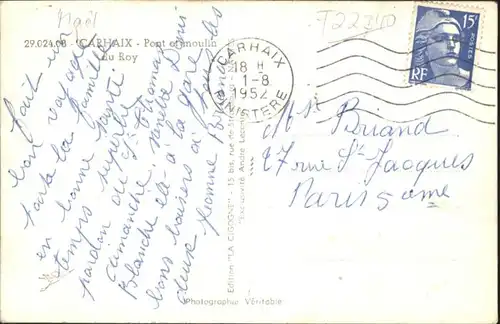 Naël
T22340
29.024.08 - CARHAIX - Pont et moulin
du Roy
CARHAIX
18 H
1-8
1952
FINISTERE
15F
POSTES
RF
fait un
bon voyage
toute la famille
en bonne santé
temps superbe
pardon de St Thomas
dimanche
Blanche
là à la gare
bons baisers à
deux Yvonne
Mr Briand
27 rue St Jacques
Paris 5ème
Edition "LA CIGOGNE" - 15 bis, rue de
Exclusivité André Leconte
Photographie Véritable